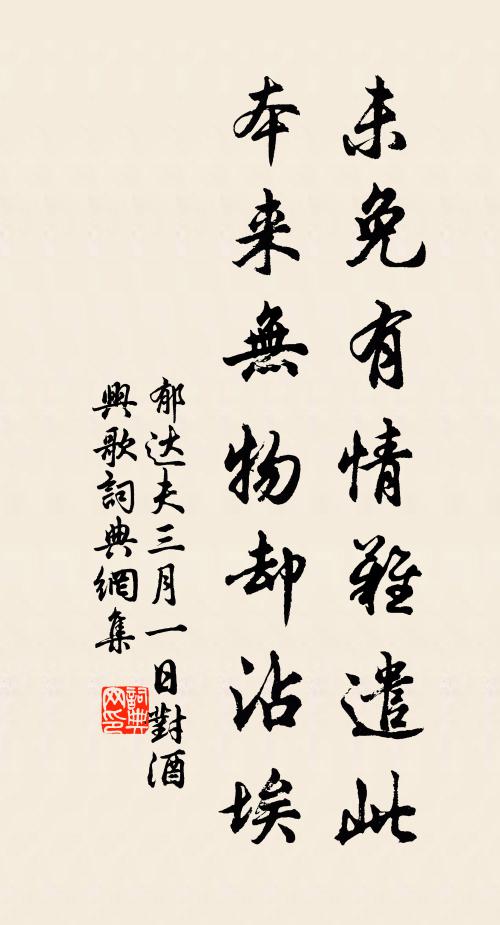 未免有情難遣此
本来無物却沾埃
郁达夫三月一日對酒
興歌詞典網集
詞典
网印